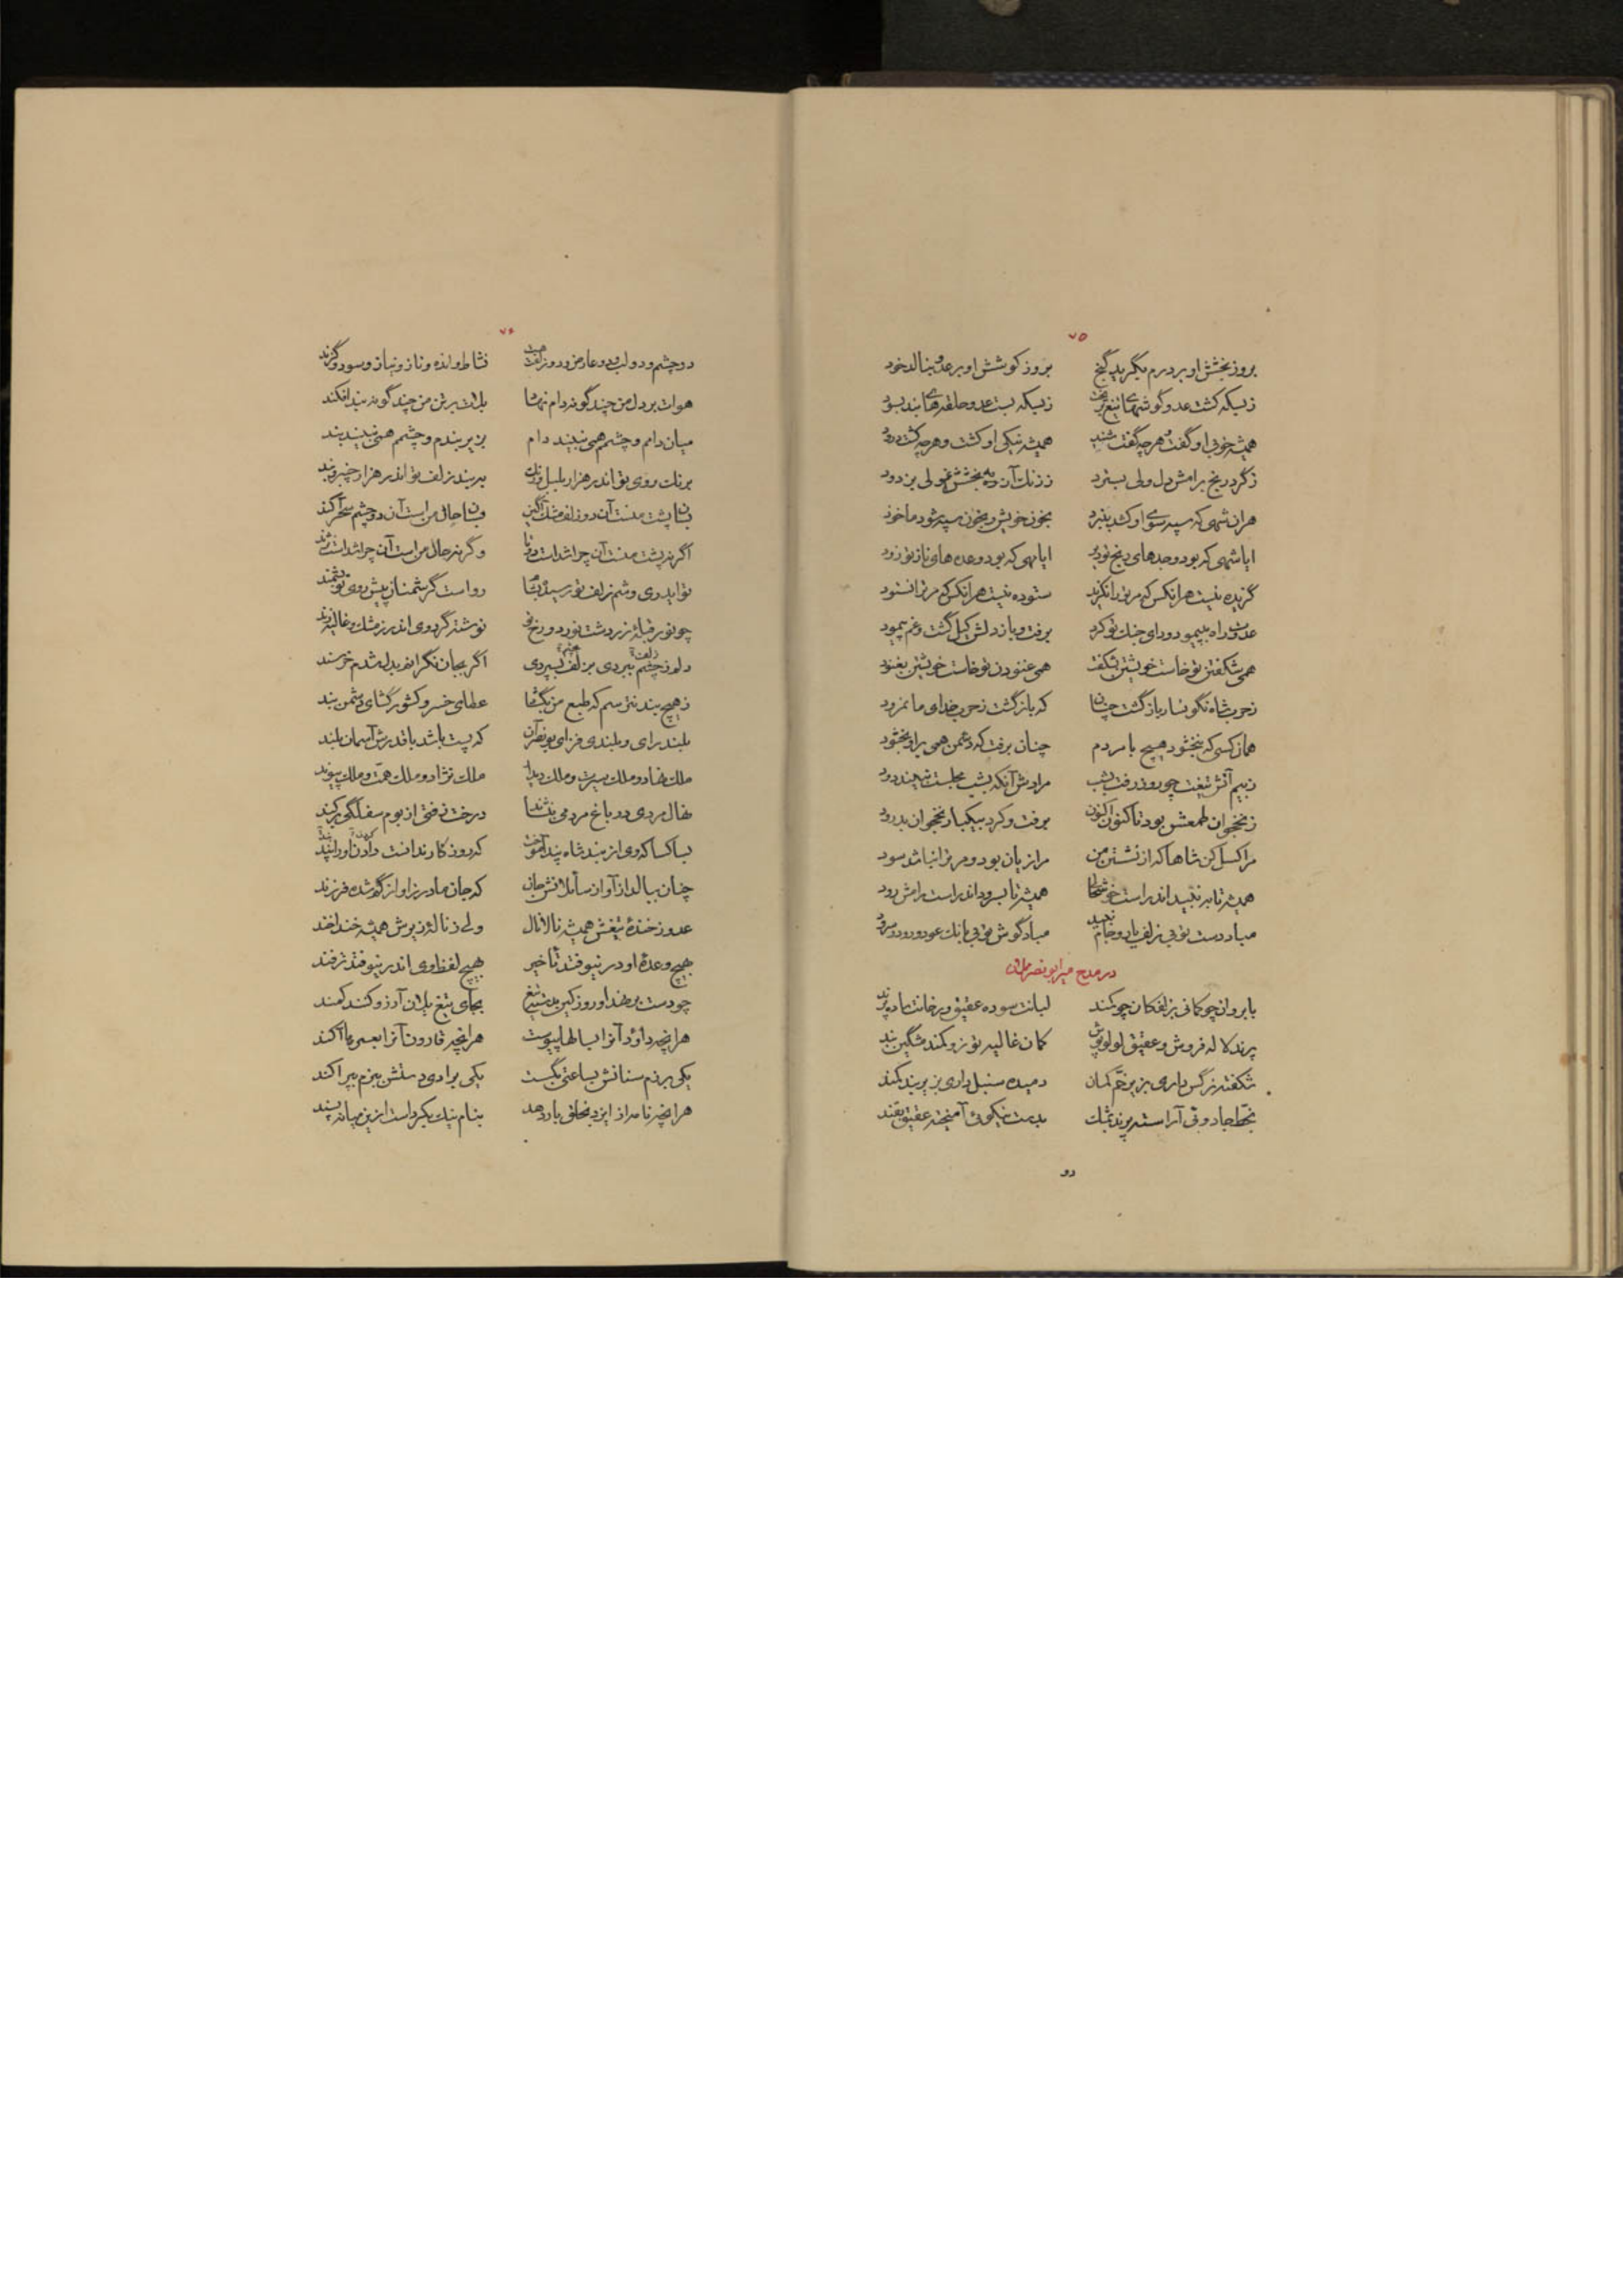 ۷۵
بروز بخشش او بر درم بگرید گنج بروز کوشش او بر عدو بنالد خود
زبسکه کشت عدو گوشهای تیغ زبسکه بست عدو حلقه های بند بسود
همیشه خوبی او گفت و هرچه گفت شنید همیشه نیکی او کشت و هرچه کشت درود
ز گرد رنج برامش دل ولی بسترد ز زنك آز به بخشش ولی بزدود
هران شهی که سپه سوی او کشد بنبرد بخون خویش و بخون سپه شود ماخوذ
ایا شهی که بود وعدهای رنج تو دیر ایا مهی که بود وعده های ناز تو زود
گزیده نیست هرانکس که مر ترا نگزید ستوده نیست هرانکس که مر ترا نستود
عدوت راه بپیمود و رای جنك تو کرد برفت و باز دلش کیل گشت و غم پیمود
همی شکفتن تو خاست خویشتن بشکفت همی غنودن تو خاست خویشتن بغنود
ز حرب شاه نگونسار بازگشت چنان که بازگشت ز حرب خدای ما نمرود
همان کسی که نبخشود هیچ با مردم چنان برفت که دشمن همی براو بخشود
ز بیم آتش تیغت چو روز رفت بشب مرادش آنکه بشب مجلست نبیند دود
ز نخجوان طمعش بود تا کنون اکنون برفت و کرد بیکبار نخجوان بدرود
مرا کسل کن شاها که از نشستن من مرا زیان بود و مر ترا نباشد سود
همیشه تا به نبید اندر است همیشه تا بسرود اندر است رامش رود
مباد دست تو بی زلف یار و جام نبید مباد گوش تو بی بانك عود و رود و سرود
در مدح میر ابونصر مملان
بابروان چو کمانی بزلفکان چو کمند لبانت سوده عقیق و رخانت ماده پرند
پرند لاله فروش و عقیق لولو پوش کمان غالیه توز و کمند مشگین بند
شکفته نرگس داری بزیر خم کمان دمیده سنبل داری بزیر بند کمند
بخط جادوئی آراسته پرند بمشك بدست نیکوئی آمیخته عقیق بقند
دو
۷۶
دو چشم و دو لب و دو عارض و دو زلف نشاط و انده و ناز و نیاز و سود و گزند
هوات بر دل من چند گونه دام نهاد بلات بر تن من چند گونه بند افکند
میان دامم و چشمم همی نبیند دام بزیر بندم و چشمم همی نبیند بند
برنك روی تو اندر هزار بلبل ببند زلف تو اندر هزار
بسان پشت منست آن دو زلف مشك آگین بسان حال من است آن دو چشم سحر آکند
اگر نه پشت منست آن چرا شد است دوتا وگرنه حال من است آن چرا شد است نژند
تو روی و شم زلف تو رواست گر شمنان پیش روی تو
چو نور قبله زردشت نور دو رخ تو نوشته گرد وی اندر ز مشك و غالیه زند
دلم ز چشم ببردی بزلف بسپردی اگر بجان نگرائی بدل شدم خرسند
ز هیچ بند نترسم که طبع من بگشاد عطای خسرو کشور گشای دشمن بند
بلند رای و بلندی فزای بونصر آن که پست باشد با قدرش آسمان بلند
ملك نهاد و ملك سیرت و ملك دیدار ملك نژاد و ملك همت و ملك پیوند
نهال مردی در باغ مردمی بنشاند درخت زفتی از بوم سفلگی برکند
بسا کسا که وی از بند شاه پند آموخت که روزگار ندانست دادن او را پند
چنان ببالد از آواز سائلانش جان که جان مادر زاواز گم شده فرزند
عدو ز خنده تیغش همیشه نالا نال ولی ز ناله زیرش همیشه خنداخند
بهیچ وعده او در نیوفتد تأخیر بهیچ لفظ وی اندر نیوفتد ترفند
چو دست برنهد او روز کین بدسته تیغ بجای تیغ یلان آرزو کنند کمند
هرانچه داود آنرا بسالها پیوست هرانچه قارون آنرا بعمرها آکند
یکی برزم سنانش بساعتی بگسست یکی برادی دستش ببزم بپراکند
هرانچه نامد از ایزد بخلق یاد دهد بنام نیك بکرد است ازین میانه پسند